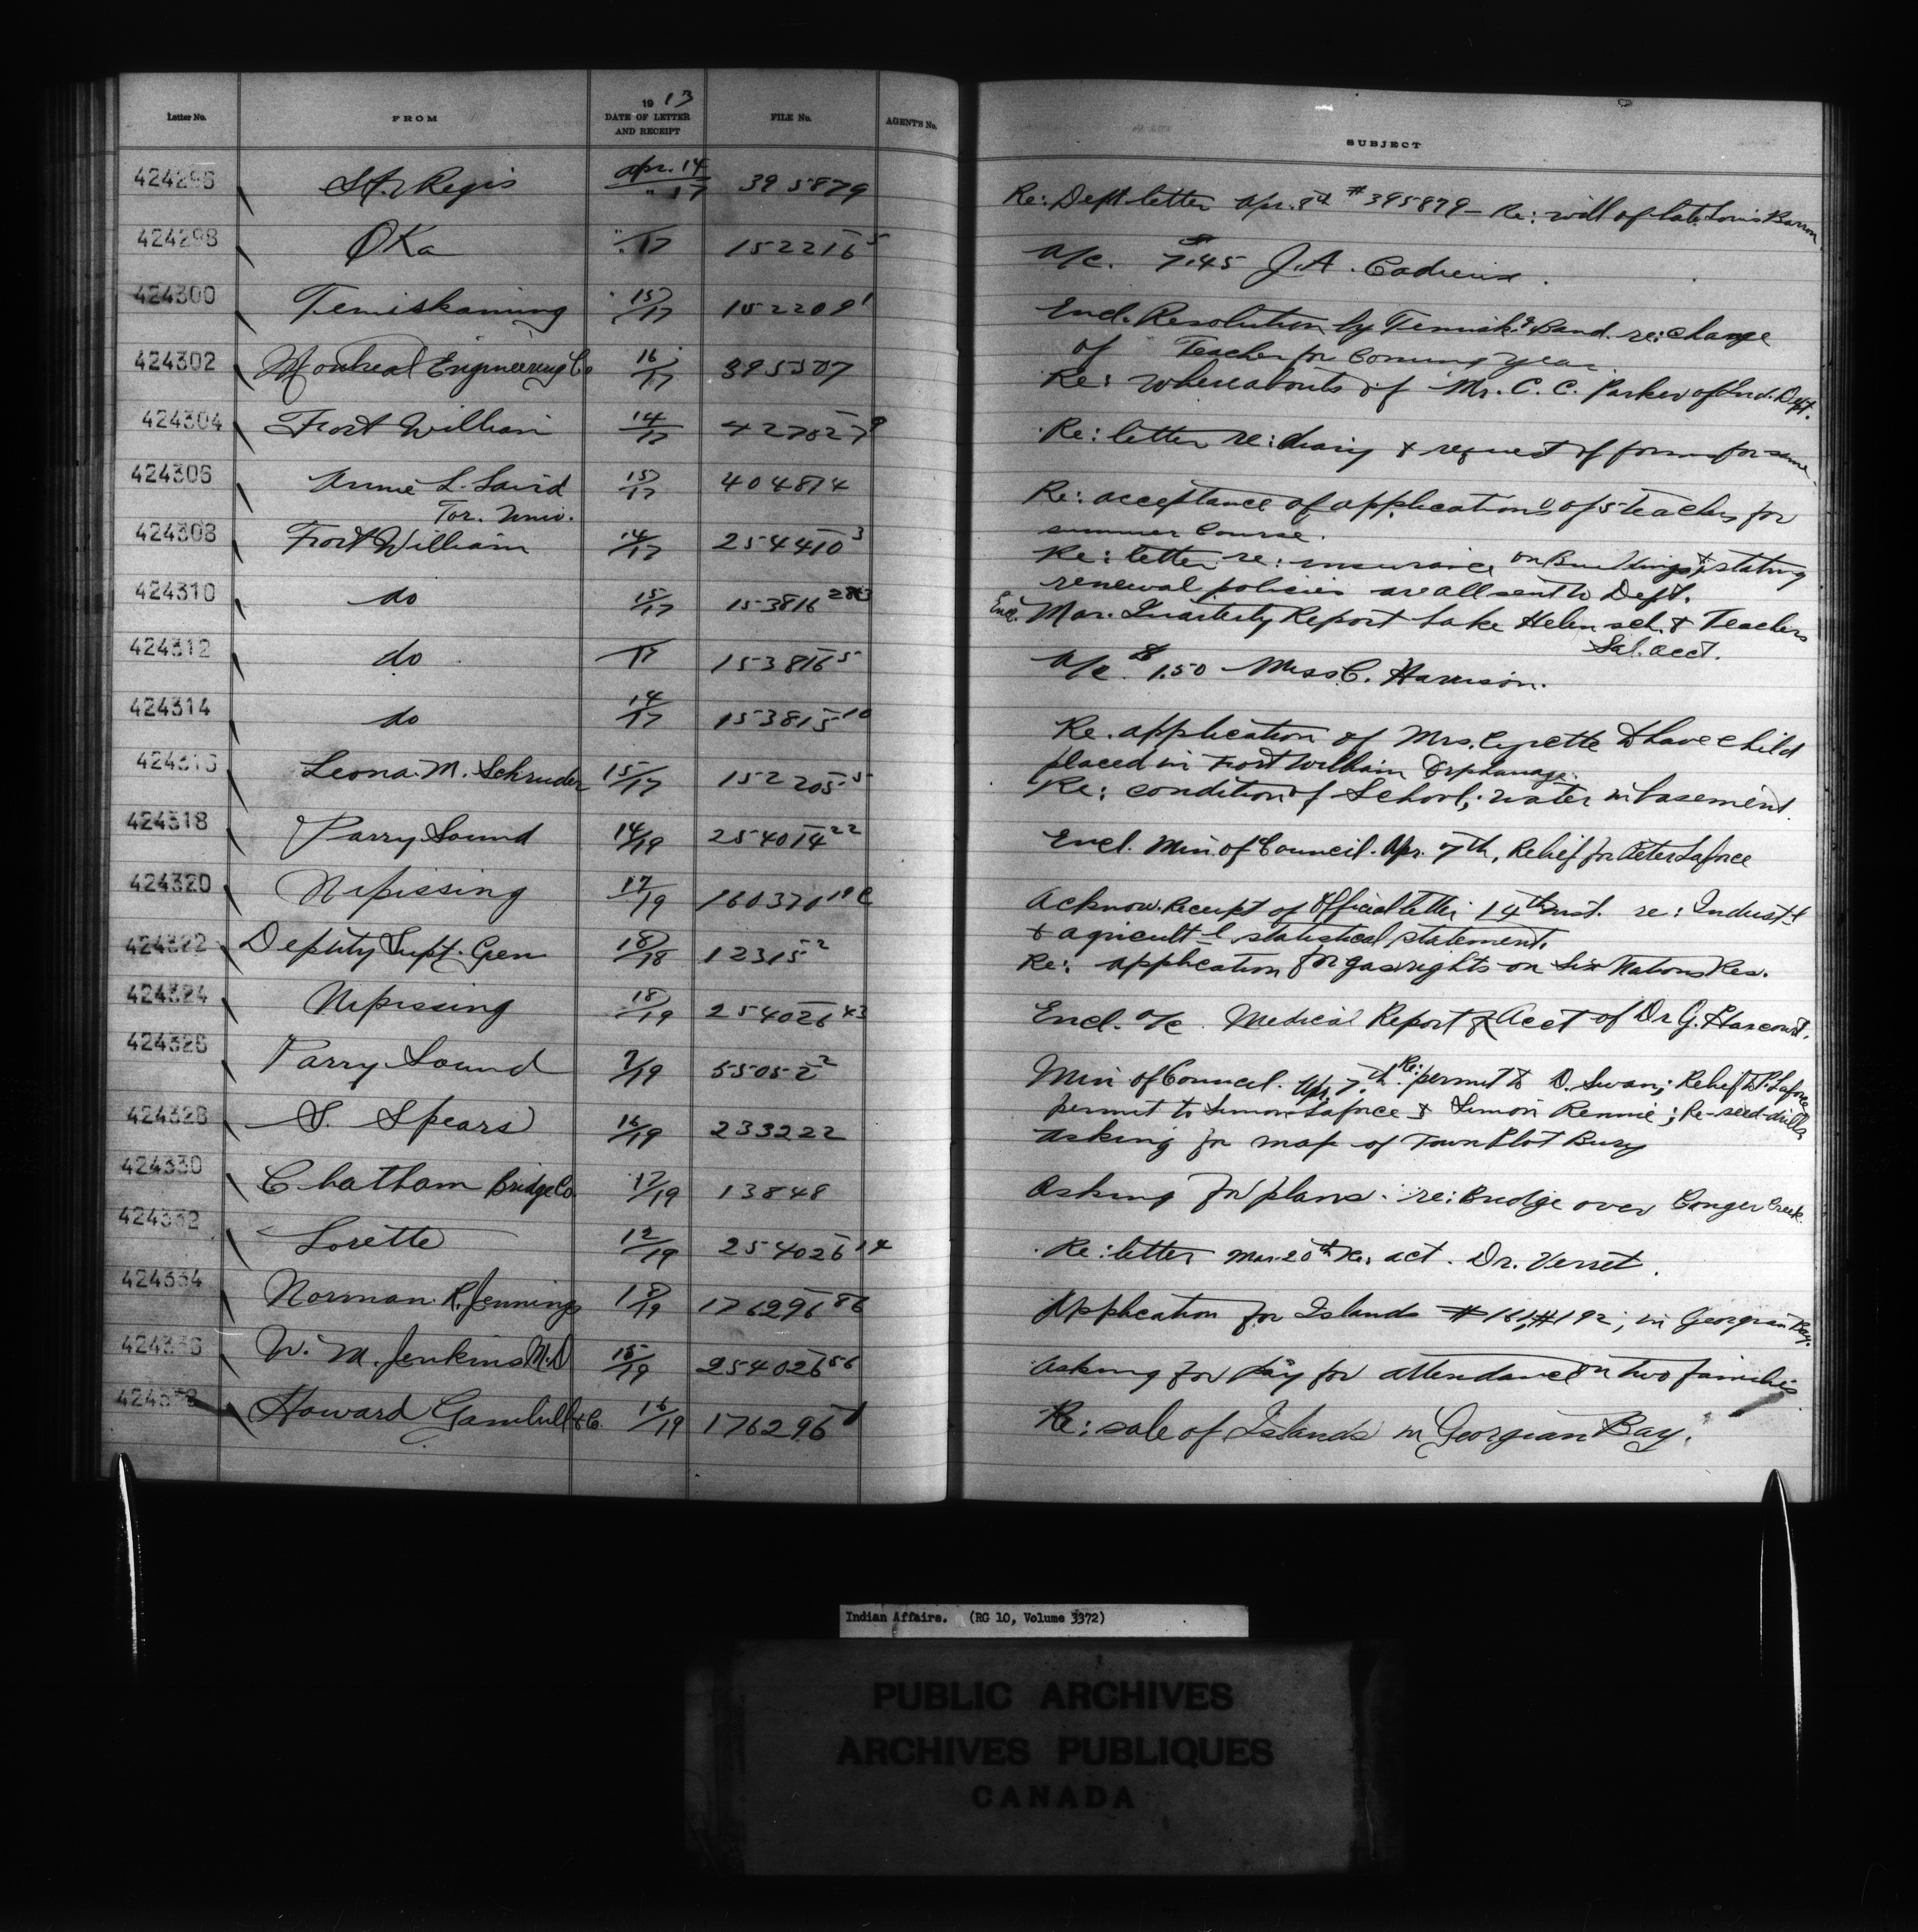 Letter No. FROM 1913 DATE OF LETTER AND RECEIPT FILE No. AGENT'S No. SUBJECT
424296 St. Regis Apr. 14 / " 17 395879 Re: Dept letter Apr. 8th #395879 - Re: will of late Louis Barron
424298 Oka " / 17 152216 5 A/c. $7.45 J. A. Cadieux.
424300 Temiskaming 15/17 152209 1 Encl. Resolution by Temisk.g Band. re: change
of Teacher for Coming year
424302 Montreal Engineering Co 16/17 395507 Re: whereabouts of Mr. C. C. Parker of Ind. Dept.
424304 Fort William 14/17 427027 9 Re: letter re: diary & request of forms for same.
424306 Annie L. Laird 15/17 404874 Re: acceptance of applications of 5 teachers for
Tor. Univ. summer course.
424308 Fort William 14/17 254410 3 Re: letter re: insurance on Buildings & stating
renewal policies are all sent to Dept.
424310 do 15/17 153816 Encl. Mar. Quarterly Report Lake Helen sch. & Teachers
Sal. acct.
424312 do 17 153816 5 A/c $1.50 Miss C. Harrison.
424314 do 14/17 153815 10 Re. application of Mrs. Cyrette to have child
placed in Fort William Orphanage.
424316 Leona M. Schruder 15/17 152205 5 Re: condition of School; water in basement.
424318 Parry Sound 14/19 254014 22 Encl. Min. of Council. Apr. 7th, Relief for Peter Laforce
424320 Nipissing 17/19 160370 19 C Acknow. Receipt of Official letter 14th inst. re: Indust-l
& agricult-l statistical statement.
424322 Deputy Supt. Gen 18/18 12315 2 Re: application for gas rights on Six Nations Res.
424324 Nipissing 18/19 254026 43 Encl. a/c Medical Report & Acct of Dr G. Harcourt.
424326 Parry Sound 7/19 55052 2 Min of Council. Apr. 7th. Re: permit to D. Swan; Relief to P. Laforce
permit to Simon Laforce & Simon Rennie; Re-seed-drills
424328 S. Spears 16/19 233222 Asking for map of Town Plot Bury
424330 Chatham Bridge Co. 17/19 13848 Asking for plans. re: Bridge over Conger Creek.
424332 Lorette 12/19 254026 14 Re: letter Mar. 20th Re: act. Dr. Verret.
424334 Norman R. Jennings 18/19 176296 86 Application for Islands #161, #192, in Georgian Bay.
424336 W. M. Jenkins M.D 15/19 254026 56 Asking for pay for attendance on two families
424338 Howard Gambill & Co. 16/19 176296 1 Re: sale of Islands in Georgian Bay.
Indian Affairs. (RG 10, Volume 3372)
PUBLIC ARCHIVES
ARCHIVES PUBLIQUES
CANADA